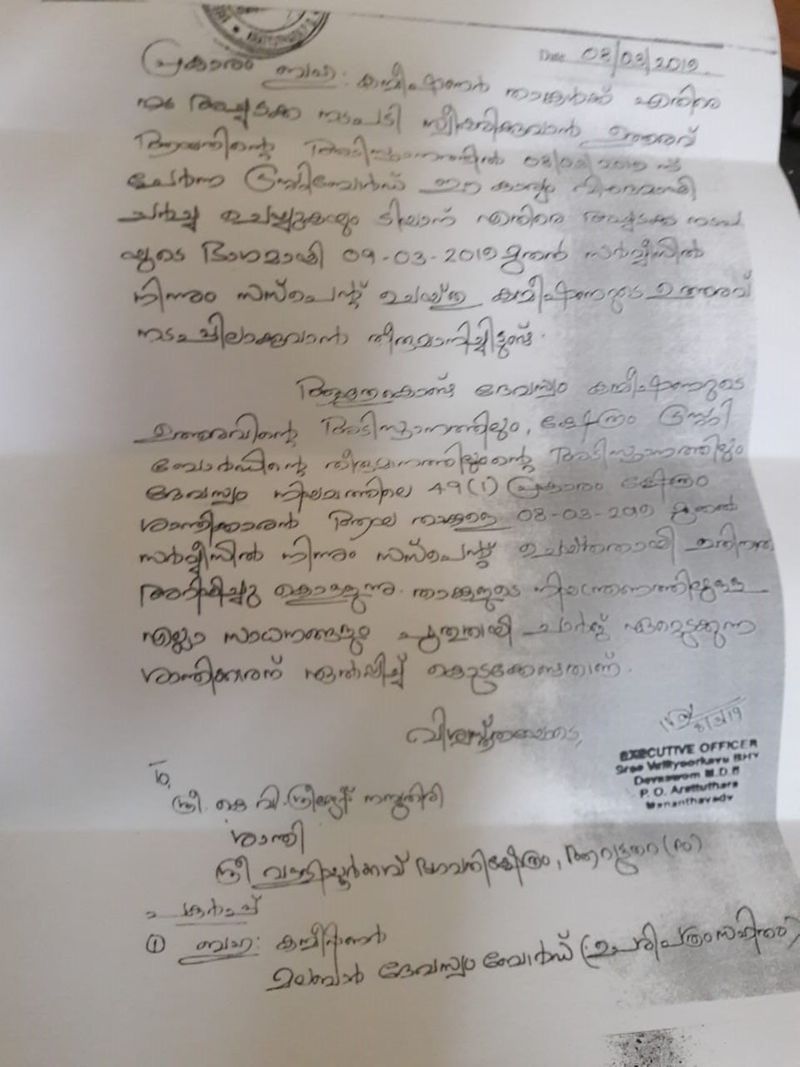 Date 08/03/2019
പ്രകാരം ബഹു: കമ്മീഷണർ താങ്കൾക്ക് എതിരെ
അച്ചടക്ക നടപടി സ്വീകരിക്കുവാൻ ഉത്തരവ്
അടിസ്ഥാനത്തിൽ 08/03/2019 ന്
ചേർന്ന ട്രസ്റ്റിബോർഡ് ഈ കാര്യം വിശദമായി
ചർച്ച ചെയ്യുകയും ടിയാന് എതിരെ അച്ചടക്ക നടപടി
യുടെ ഭാഗമായി 09-03-2019 മുതൽ സർവ്വീസിൽ
നിന്നും സസ്പെന്റ് ചെയ്ത കമ്മീഷണറുടെ ഉത്തരവ്
നടപ്പിലാക്കുവാൻ തീരുമാനിച്ചിട്ടുണ്ട്.
ആയതുകൊണ്ട് ദേവസ്വം കമ്മീഷണറുടെ
ഉത്തരവിന്റെ അടിസ്ഥാനത്തിലും, ക്ഷേത്രം ട്രസ്റ്റി
ബോർഡിന്റെ അടിസ്ഥാനത്തിലും
ദേവസ്വം നിയമത്തിലെ 49(1) പ്രകാരം ക്ഷേത്രം
ശാന്തിക്കാരൻ ആയ താങ്കളെ 08-03-2019 മുതൽ
സർവ്വീസിൽ നിന്നും സസ്പെന്റ് ചെയ്തതായി ഇതിനാൽ
അറിയിച്ചു കൊള്ളുന്നു. താങ്കളുടെ നിയന്ത്രണത്തിലുള്ള
എല്ലാ സാധനങ്ങളും പുതുതായി ചാർജ്ജ് ഏറ്റെടുക്കുന്ന
ശാന്തിക്കാരന് ഏൽപ്പിച്ച് കൊടുക്കേണ്ടതാണ്.
വിശ്വസ്തതയോടെ,
EXECUTIVE OFFICER
Sree Valliyoorkavu BHY
Devaswom M.D.B
P. O. Arattuthara
Mananthavady
To,
ശ്രീ. കെ വി. നമ്പൂതിരി
ശാന്തി
ശ്രീ വള്ളിയൂർക്കാവ് ഭഗവതിക്ഷേത്രം, ആറാട്ടുതറ (PO)
പകർപ്പ്
① ബഹു: കമ്മീഷണർ
മലബാർ ദേവസ്വം ബോർഡ്